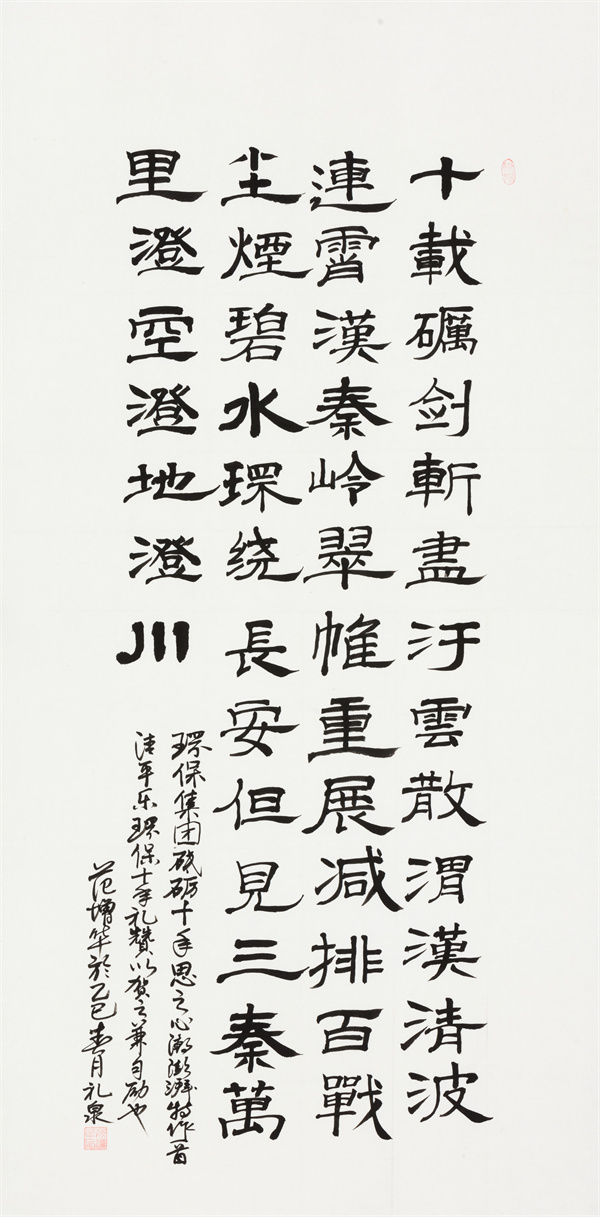 十載礪剑斬盡汙雲散渭漢清波
連霄漢秦岭翠帷重展減排百戰
尘煙碧水環绕長安但見三秦萬
里澄空澄地澄川
环保集团砥砺十年思之心潮澎湃特作首
清平乐环保十年礼赞以贺之兼自励也
范增华於乙巳春月礼泉